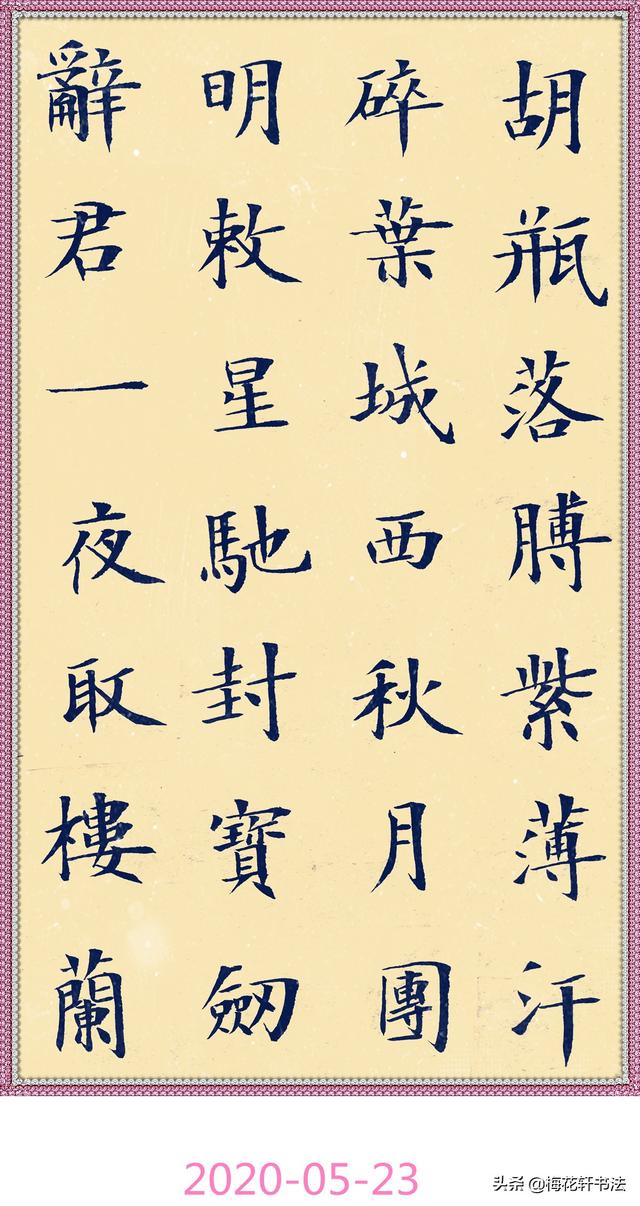 胡瓶落膊紫薄汗
碎葉城西秋月團
明敕星馳封寶劒
辭君一夜取樓蘭
2020-05-23
头条 @梅花轩书法